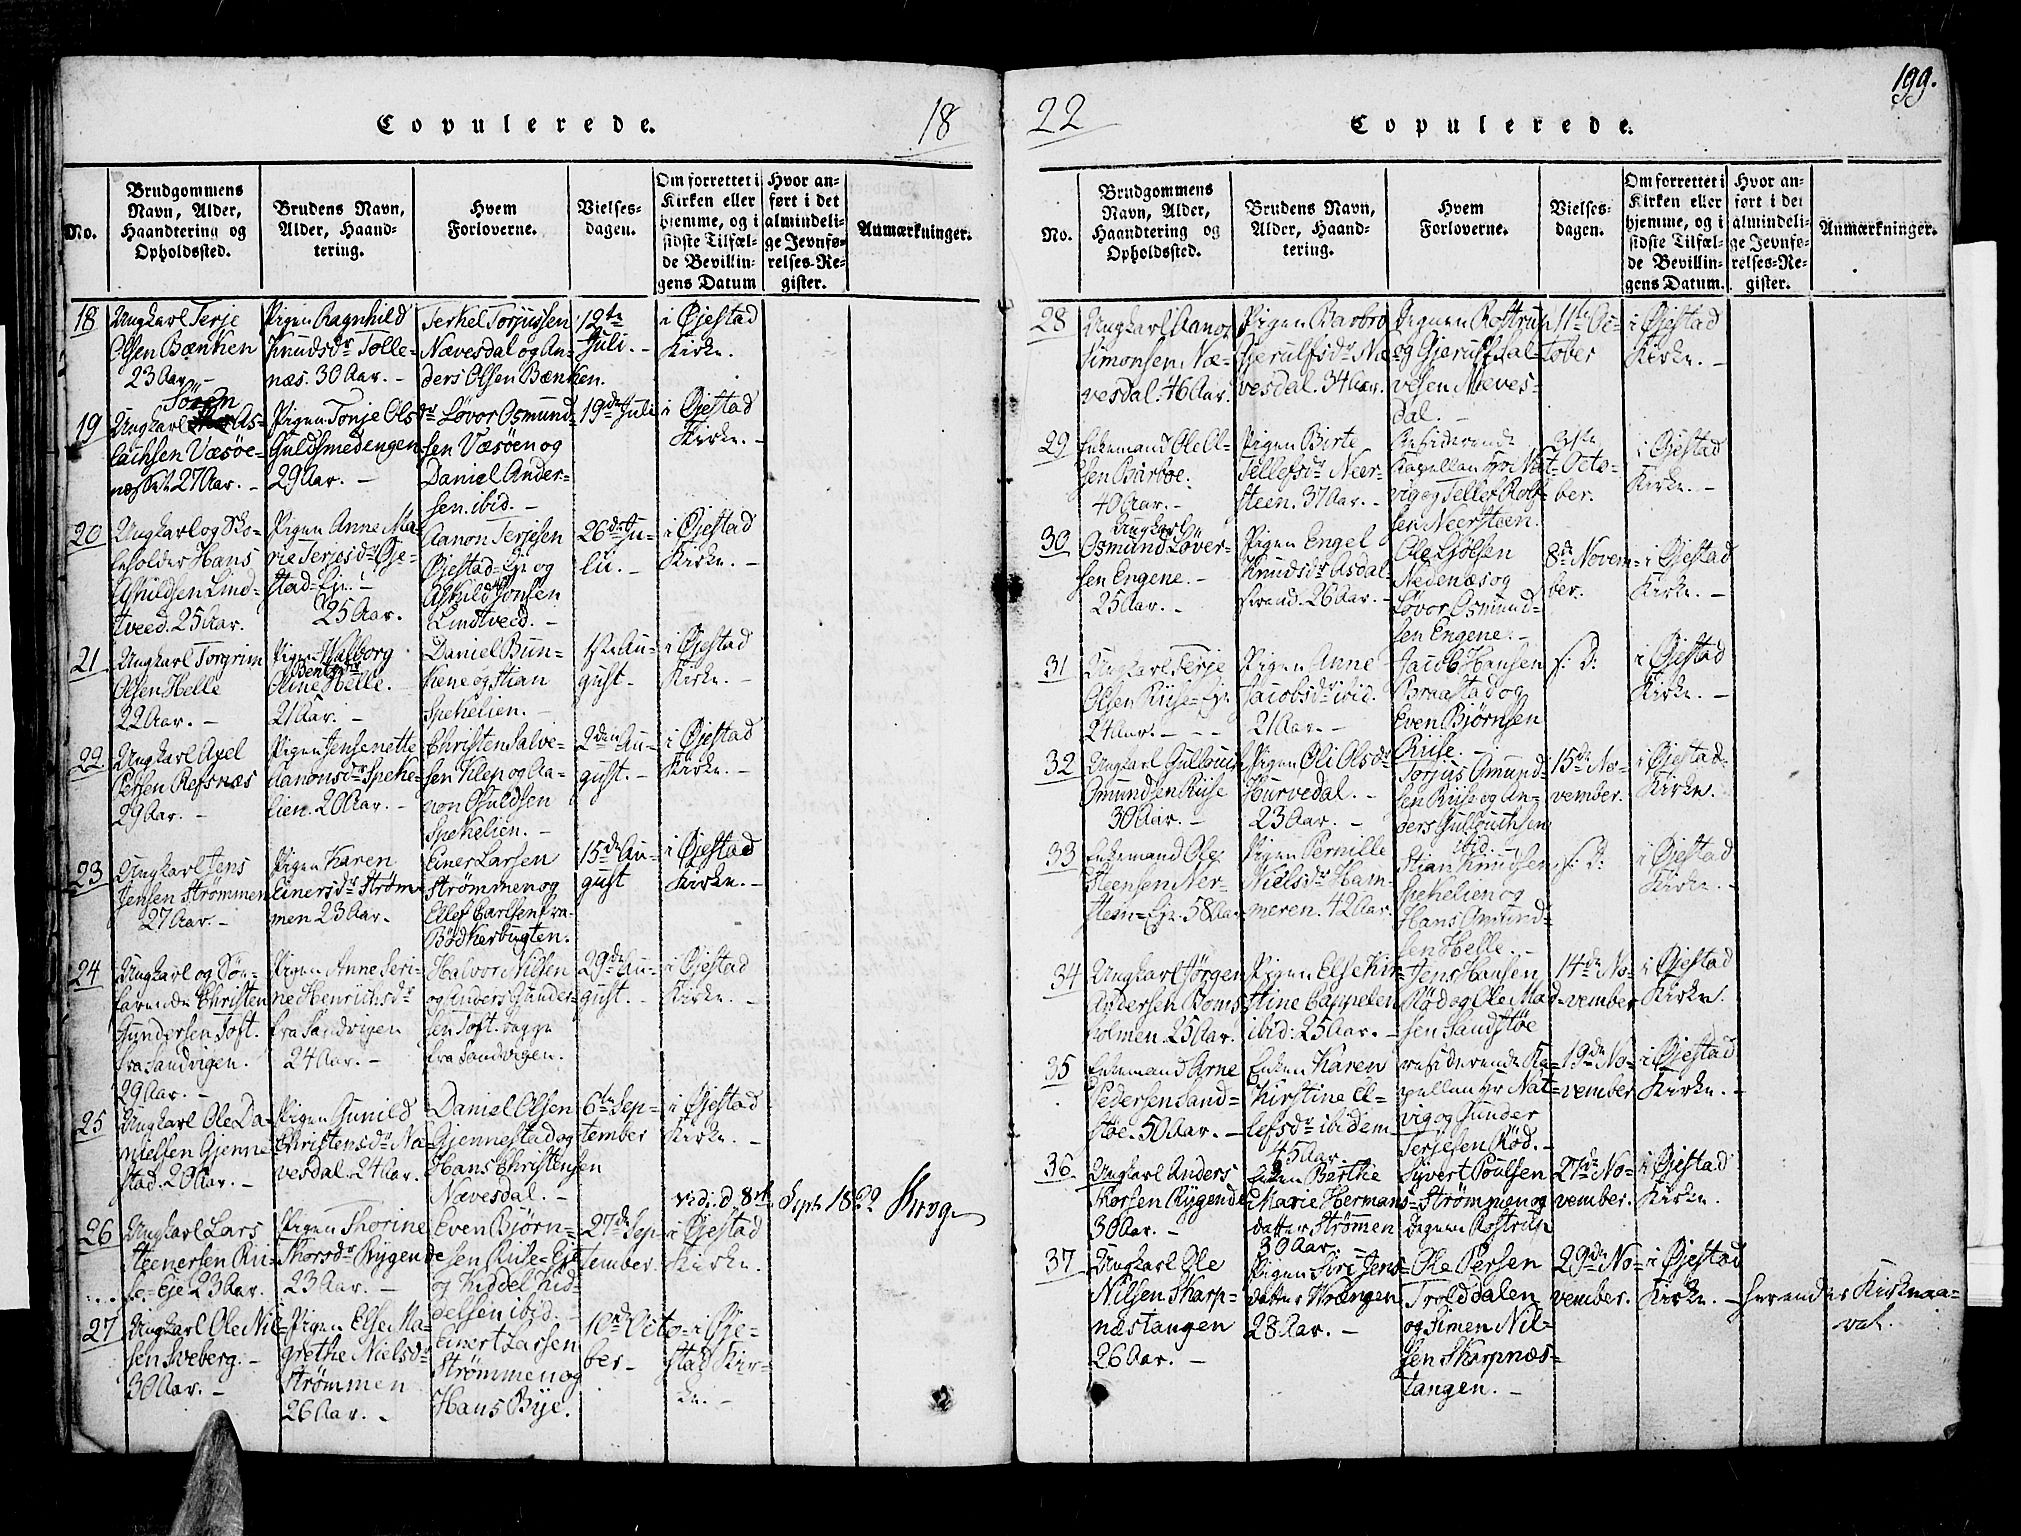 Copulerede.
18
No.
Brudgommens
Navn, Alder,
Haandtering og
Opholdssted.
Brudens Navn,
Alder, Haand-
tering.
Hvem
Forloverne.
Vielses-
dagen.
Om forrettet i
Kirken eller
hjemme, og i
sidste Tilfæl-
de Bevillin-
gens Datum
Hvor an-
ført i det
almindeli-
ge Jevnfø-
relses-Re-
gister.
Anmærkninger.
18
Ungkarl Terje
Olsen Bænken
23 Aar. -
Pigen Ragnhild
Knudsdr Tolle-
næs. 30 Aar. -
Terkel Torjussen
Nævesdal og An-
ders Olsen Bænken.
12te
Juli. -
i Øjestad
Kirke.
19
Sören
Ungkarl As-
lachsen Væsøe-
27 Aar. -
Pigen Tonje Olsdr
Guldsmedengen
29 Aar. -
Løvor Osmund-
sen Væsöen og
Daniel Ander-
sen. ibid. -
19de Juli
i Øjestad
Kirke. -
20
Ungkarl og Sko-
leholder Hans
Askildsen Lind-
tveed. 25 Aar.
Pigen Anne Ma-
rie Terjesdr Øje-
stad=Eje. -
25 Aar. -
Aanon Terjesen
Øjestad=Eje og
Askild Jonsen
Lindtveed. -
26de Ju-
li. -
i Øjestad
Kirke. -
21
Ungkarl Torgrim
Olsen Helle
22 Aar. -
Pigen Walborg
Oline Helle. -
21 Aar. -
Daniel Bun-
kene og Stian
Spekelien. -
1ste Au-
gust. -
i Øjestad
Kirke. -
22
Ungkarl Axel
Persen Refsnæs
29 Aar. -
Pigen Jensenette
Aanonsdr Speke-
lien. 20 Aar. -
Christen Salve-
sen Klep og Aa-
non Guldsen
Spekelien. -
2den Au-
gust. -
i Øjestad
Kirke. -
23
Ungkarl Jens
Jensen Strømmen
27 Aar. -
Pigen Karen
Einersdr Strøm-
men 23 Aar. -
Einer Larsen
Strømmen og
Ellef Carlsen fra
Bödkerbugten.
15de Au-
gust
i Øjestad
Kirke. -
24
Ungkarl og Søe-
farende Christen
Gundersen Toft.
fra Sandvigen.
29 Aar. -
Pigen Anne Seri-
ne Henrichsdr
fra Sandvigen
24 Aar. -
Halvor Nilsen
og Anders Gunder-
sen Toft. begge
fra Sandvigen.
29de Au-
gust. -
i Øjestad
Kirke. -
25
Ungkarl Ole Da-
nielsen Gjenne-
stad. 20 Aar. -
Pigen Gunild
Christensdr Næ-
vesdal. 24 Aar.
Daniel Olsen
Gjennestad og
Hans Christensen
Nævesdal. -
6te Sep-
tember
i Øjestad
Kirke. -
Vidi. d. 8de Septr 1822 Krog
26
Ungkarl Lars
Steenersen Rii-
se=Eje 23 Aar.
Pigen Thorine
Thorsdr Rygende
23 Aar. -
Even Bjørn-
sen Riise=Eje
og Kiddel Kid-
delsen ibid. -
27de Sep-
tember.
i Øjestad
Kirke.
27
Ungkarl Ole Nil-
sen Sveberg. -
30 Aar. -
Pigen Else Ma-
grethe Nielsdr
Strømmen
26 Aar. -
Einert Larsen
Strømmen og
Hans Bye.
10de Octo-
ber -
i Øje-
stad Kir-
ke. -
22
Copulerede.
199.
No.
Brudgommens
Navn, Alder,
Haandtering og
Opholdssted.
Brudens Navn,
Alder, Haand-
tering.
Hvem
Forloverne.
Vielses-
dagen.
Om forrettet i
Kirken eller
hjemme, og i
sidste Tilfæl-
de Bevillin-
gens Datum.
Hvor an-
ført i det
almindeli-
ge Jevnfø-
relses-Re-
gister.
Anmærkninger.
28
Ungkarl Aanon
Simonsen Næ-
vesdal. 46 Aar.
Pigen Barbro
Gjerulfsdr Næ-
vesdal. 34 Aar.
Degnen Rostrup
og Gjerulf Sal-
vesen Næves-
dal. -
11te Oc-
tober
i Øjestad
Kirke. -
29
Enkemand Ole Ol-
sen Barboe.
40 Aar. -
Pigen Birte
Tellefsdr Neer-
steen. 37 Aar. -
Residerende
Kapellan Hr Nat-
vig og Tellef Rolf-
sen Neersteen.
Octo-
ber.
i Øjestad
Kirke. -
30
Ungkarl
Osmund Løver-
sen Engene. -
25 Aar. -
Pigen Engel
Knudsdr Asdal-
strand. 26 Aar. -
Ole Gjølsen
Nedenæs og
Løvor Osmund-
sen Engene. -
8de Novem-
ber.
i Øjestad
Kirke. -
31
Ungkarl Terje
Olsen Riise=Eje
24 Aar. -
Pigen Anne
Jacobsdr ibid.
21 Aar. -
Jacob Hansen
Braastad og
Even Bjørnsen
Riise. -
s: D:
i Øjestad
Kirke. -
32
Ungkarl Gullouch
Omundsen Riise
30 Aar. -
Pigen Øli Olsdr
Hurvedal. -
23 Aar. -
Torjus Omund-
sen Riise og An-
ders Gullouchsen
ibid. -
15de No-
vember.
i Øjestad
Kirke.
33
Enkemand Ole
Steensen Neer-
steen=Eje. 58 Aar
Pigen Pernille
Nielsdr Ham-
meren. 42 Aar.
Stian Knudsen
Spekelien og
Hans Omund-
sen Helle. -
s: D:
i Øjestad
Kirke. -
34
Ungkarl Jørgen
Andersen Boms-
holmen. 25 Aar.
Pigen Else Kir-
stine Cappelen
ibid: 25 Aar. -
Jens Hansen
Rød og Ole Mad-
sen Sandstøe
14de No-
vember
i Øjestad
Kirke.
35
Enkemand Arne
Pedersen Sand-
støe. 50 Aar. -
Enken Karen
Kirstine El-
lefsdr ibidem
45 Aar
residerende Ka-
pellan Hr Nat-
vig og Gunder
Terjesen Rød. -
19de No-
vember
i Øjestad
Kirke. -
36
Ungkarl Anders
Thorsen Rygende
30 Aar. -
Pigen Barthe
Marie Hermans-
datter Strømen
30 Aar
Syvert Poulsen
Strömmen og
Degnen Rostrup
27de No-
vember.
i Øjestad
Kirke.
37
Ungkarl Ole
Nilsen Skarp-
næstangen
26 Aar. -
Pigen Siri Jens-
datter Vrængen
28 Aar. -
Ole Persen
Trolddalen
og Simen Nil-
sen Skarpnæs-
tangen. -
29de No-
vember.
i Øjestad
Kirke. -
herender Kirkeaa-
ret.